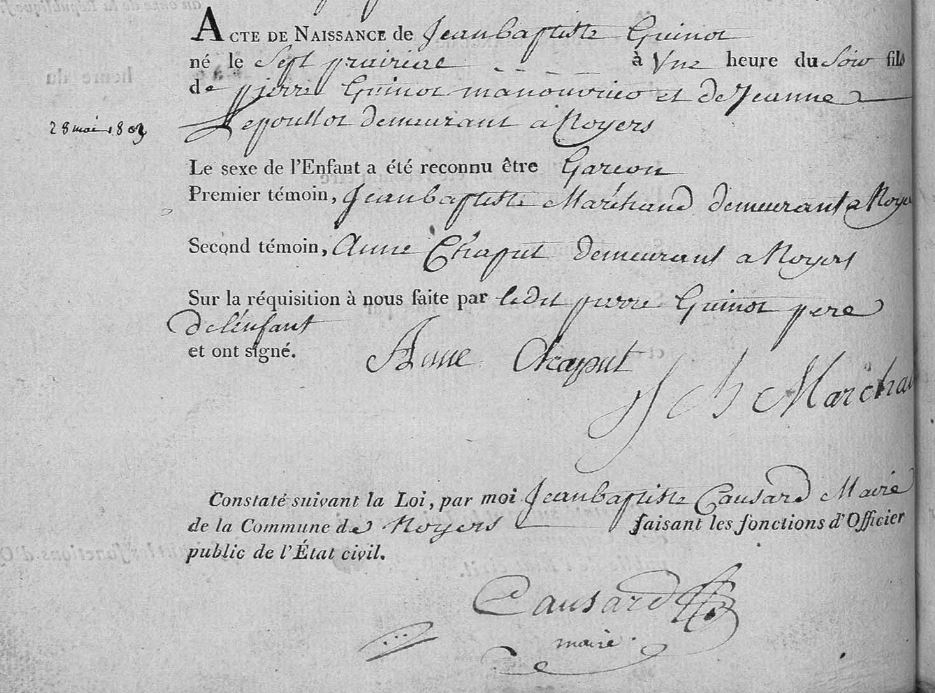 Acte de Naissance de Jeanbaptiste Guinot
né le Sept prairiere à Une heure du Soir fils
de pierre Guinot manouvrier et de Jeanne
28 mai 1803
Lepoullot demeurant a Noyers
Le sexe de l'Enfant a été reconnu être Garcon
Premier témoin, Jeanbaptiste Maréhand demeurant a Noye
Second témoin, Anne Chaput demeurant a Noyers
Sur la réquisition à nous faite par ledit pierre Guinot pere
de lénfant
et ont signé. Anne Chaput
J b Marchan
Constaté suivant la Loi, par moi Jeanbaptiste Causard Maire
de la Commune de Noyers faisant les fonctions d'Officier
public de l'État civil.
Causard
maire